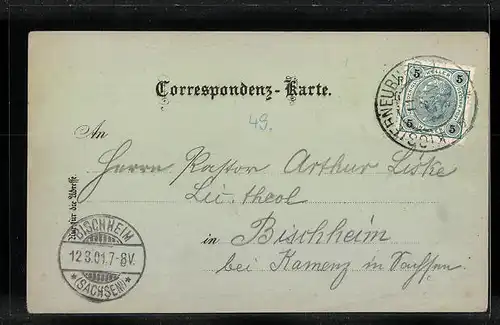 Correspondenz-Karte.
49.
An
Herrn Pastor Arthur Liske
Lic. theol
in Bischheim
bei Kamenz in Sachsen.
Nur für die Adresse.
BISCHHEIM
12.3.01.7-8V.
*(SACHSEN)*
KLOSTERNEUBURG
5 5
5 5